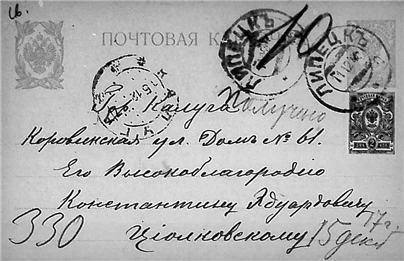 ПОЧТОВАЯ КА
ЛИПЕЦКЪ
ЛИПЕЦКЪ
10
Гор Калуга
Получено
Коровинская ул. Домъ № 61.
Его Высокоблагородію
Константину Эдуардовичу
Ціолковскому
330
17г.
15 дек